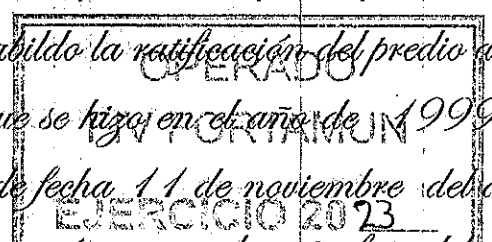 abildo la ratificación del predio a
OPERADO
ue se hizo en el año de 1999
FORTAMUN
de fecha 11 de noviembre del
EJERCICIO 2023